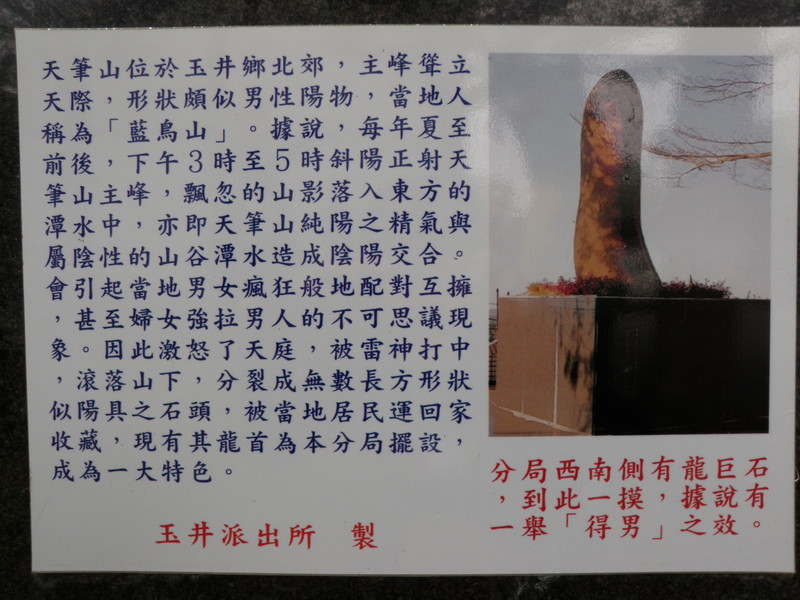 天筆山位於玉井鄉北郊，主峰聳立
天際，形狀頗似男性陽物，當地人
稱為「藍鳥山」。據說，每年夏至
前後，下午3時至5時斜陽正射天
筆山主峰，飄忽的山影落入東方的
潭水中，亦即天筆山純陽之精氣與
屬陰性的山谷潭水造成陰陽交合。
會引起當地男女瘋狂般地配對互擁
，甚至婦女強拉男人的不可思議現
象。因此激怒了天庭，被雷神打中
，滾落山下，分裂成無數長方形狀
似陽具之石頭，被當地居民運回家
收藏，現有其龍首為本分局擺設，
成為一大特色。
玉井派出所 製
分局西南側有龍巨石
，到此一摸，據說有
一舉「得男」之效。